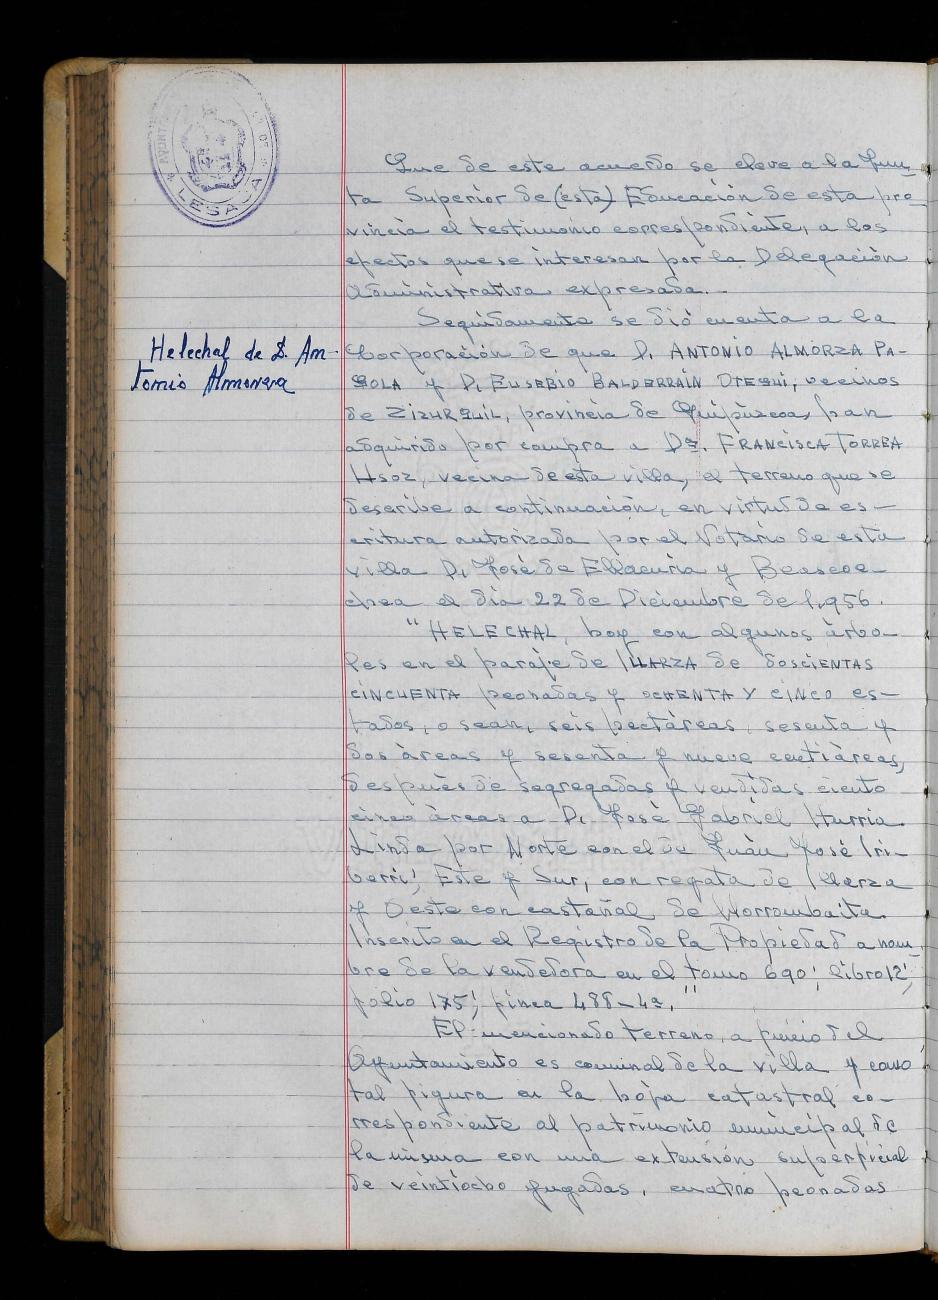 AYUNT
DE
LESACA
Que de este acuerdo se eleve a la Jun-
ta Superior de (esta) Educación de esta pro-
vincia el testimonio correspondiente, a los
efectos que se interesan por la Delegación
Administrativa expresada.-
Seguidamente se dió cuenta a la
Helechal de D. An-
tonio Almorza
Corporación de que D. ANTONIO ALMORZA PA-
GOLA y D. EUSEBIO BALDERRAIN OTEGUI, vecinos
de ZIZURQUIL, provincia de Guipúzcoa, han
adquirido por compra a Dª. FRANCISCA TORREA
Usoz, vecina de esta villa, el terreno que se
describe a continuación, en virtud de es-
critura autorizada por el Notário de esta
villa D. José de Ellacuria y Beascoe-
chea el día 22 de Diciembre de 1.956.
"HELECHAL, hoy con algunos árbo-
les en el paraje de ILLARZA de DOSCIENTAS
CINCUENTA peonadas y OCHENTA Y CINCO es-
tados, o sean, seis hectáreas, sesenta y
dos áreas y sesenta y nueve centiáreas,
después de segregadas y vendidas ciento
cinco áreas a D. José Gabriel Iturria.
Linda por Norte con el de Juan José Iri-
barri; Este y Sur, con regata de Illarza
y Oeste con castañal de Worrombaita.
Inscrito en el Registro de la Propiedad a nom-
bre de la vendedora en el tomo 690; libro 12;
folio 175; finca 488-4ª."
El mencionado terreno, a juicio del
Ayuntamiento es comunal de la villa y como
tal figura en la hoja catastral co-
rrespondiente al patrimonio municipal de
la misma con una extensión superficial
de veintiocho yugadas, cuatro peonadas